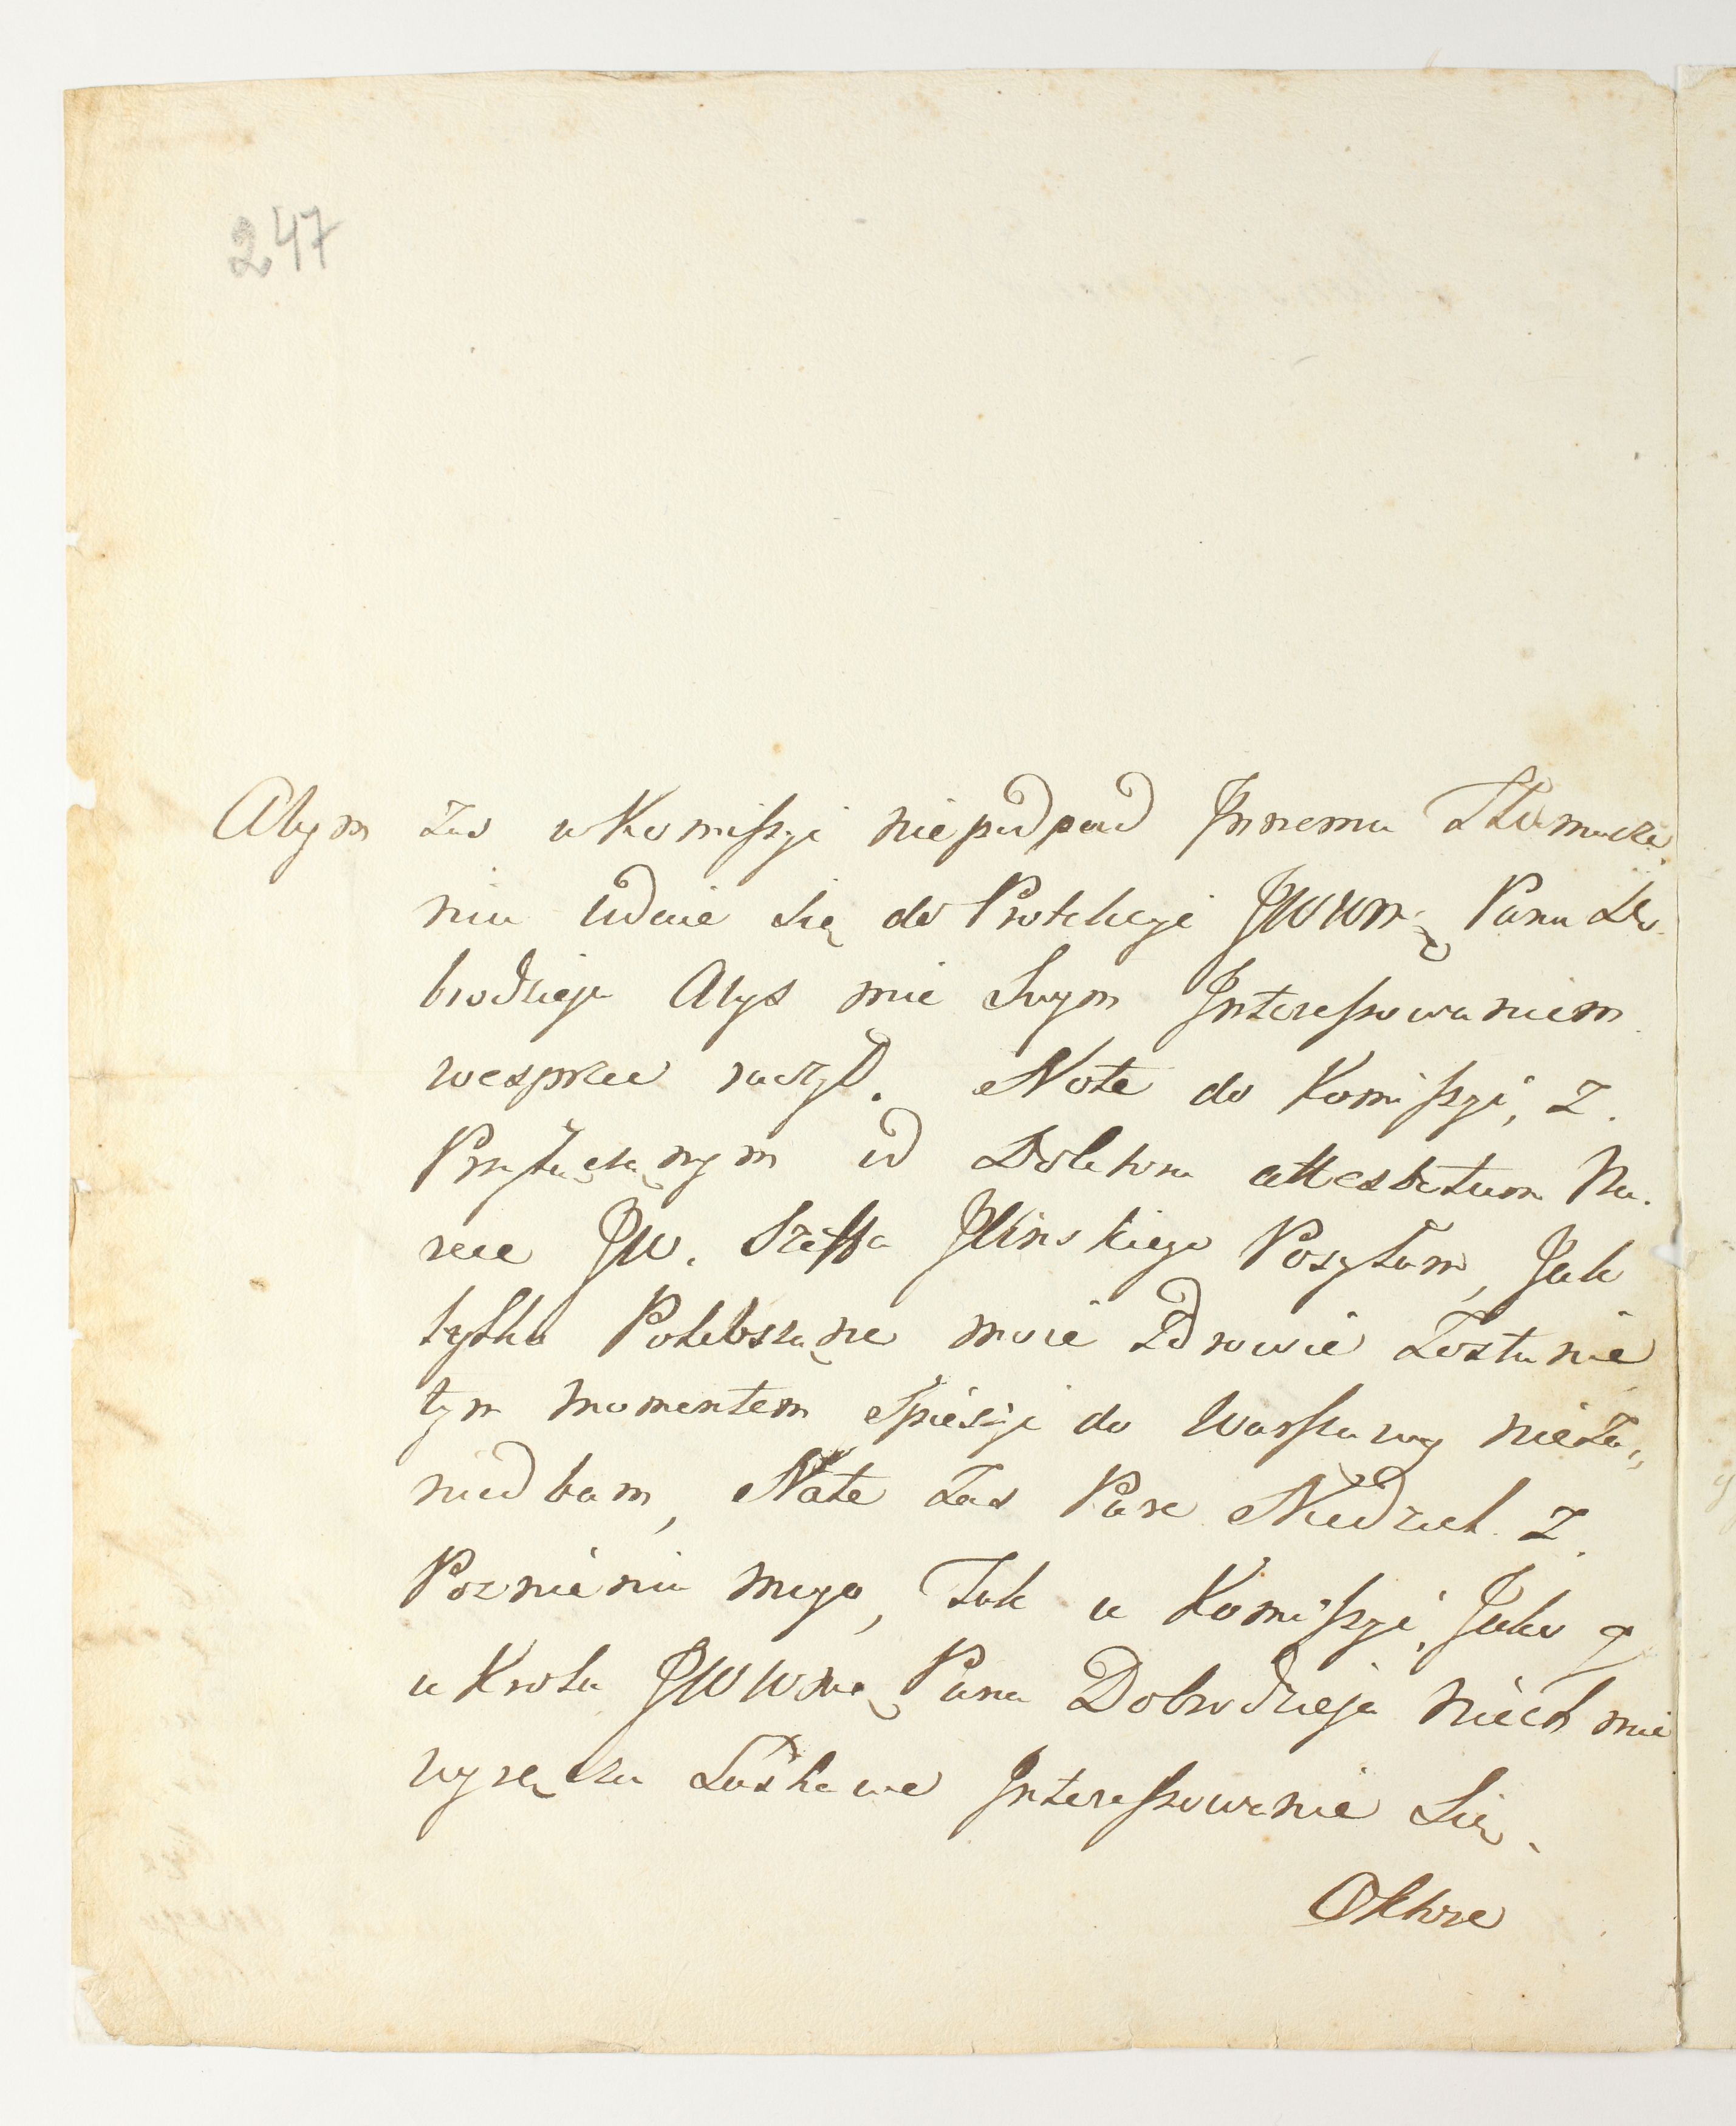 247
Abym Zas u Komiszyi niepodpad Innemu Tłumacze
niu Udaie Się do Protekcyi JWWM Pana Do
brodzieja Abys mie Swym Interessowaniem
wesprzec raczył. Note do Komiszyi, Z.
Przyłączanym od Doktora attestatum Na.
rece JW. Szeffa Ilinskiego Posyłam, Jak
tylko Polebszane moie Zdrowie Zostanie
tym momentem Spieszyc do Warszawy nieZa„
niedbam, Na te Zas Pare Niedziel Z.
Poznienia mego, Tak u Komiszyi, Jako y
u Krola JWWMa Pana Dobrodzieja Niech mie
wyręcza Łaskawe Interessowanie Się.
Oktore